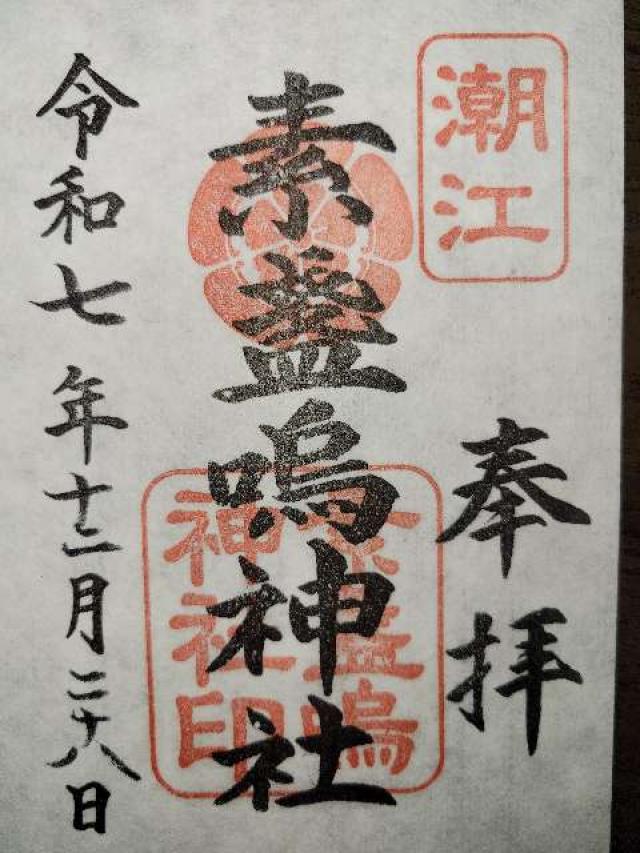 潮江
奉拝
素盞嗚神社
素盞嗚
神社印
令和七年十二月二十八日